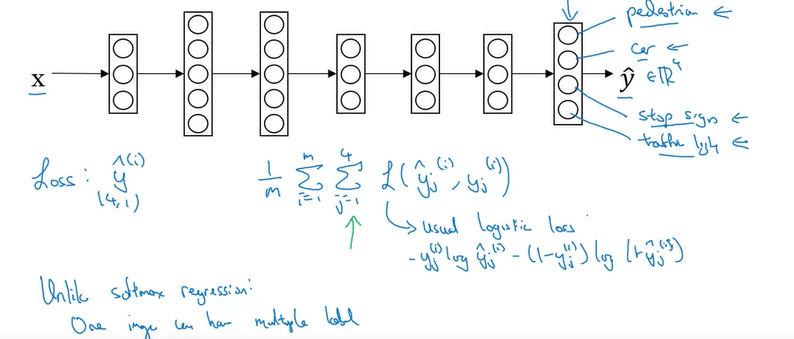 pedestrian ←
car ←
x
ŷ ∈ℝ⁴
stop sign ←
traffic light ←
Loss: ŷ^(i)
(4,1)
1/m Σ_{i=1}^{m} Σ_{j=1}^{4} L(ŷ_j^(i), y_j^(i))
↳ usual logistic loss
- y_j^(i) log ŷ_j^(i) - (1-y_j^(i)) log (1-ŷ_j^(i))
Unlike softmax regression:
One image can have multiple label